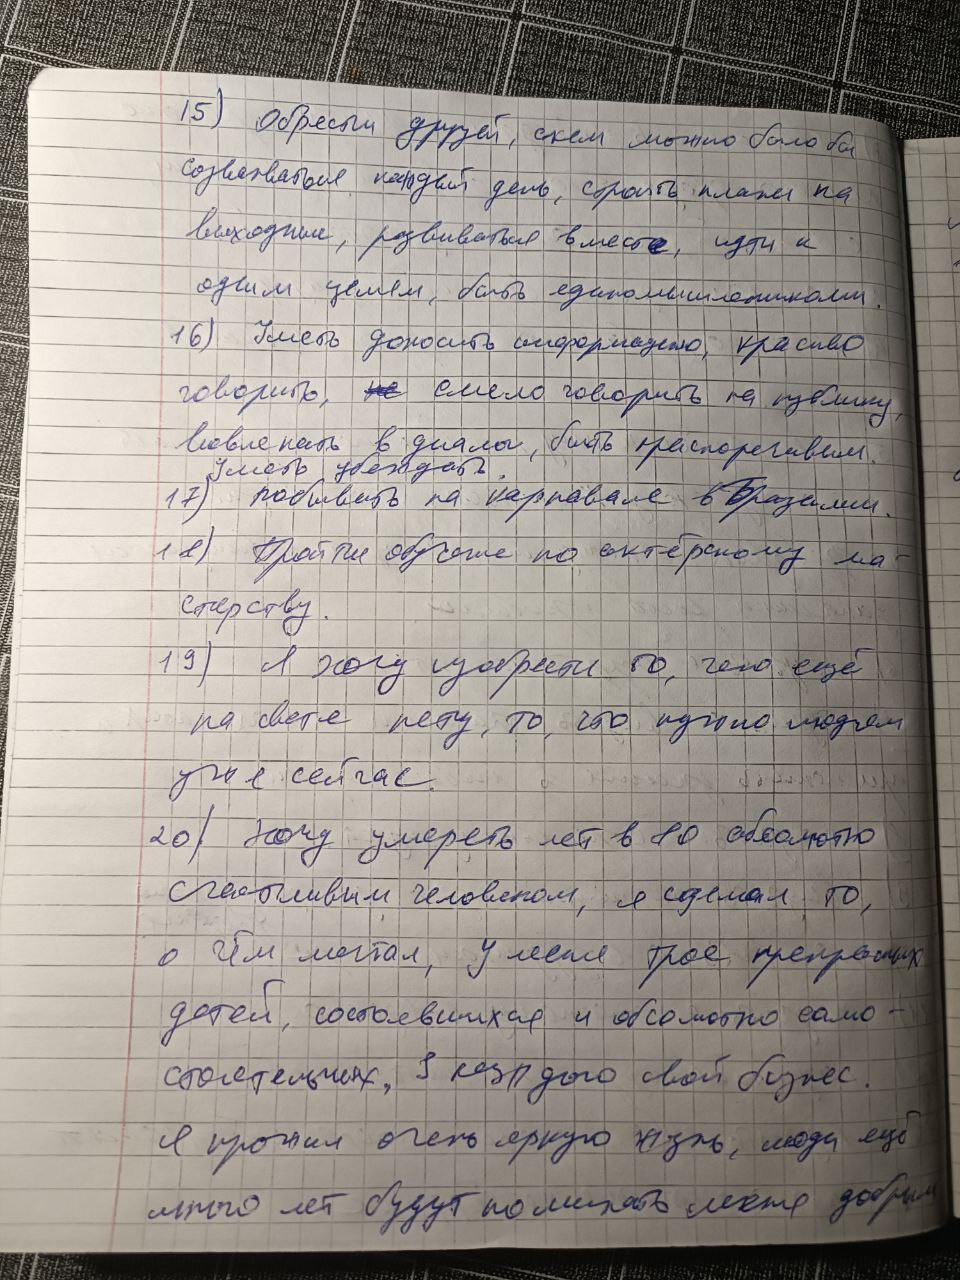 15) Обрести друзей, с кем можно было бы
созваниваться каждый день, строить планы на
выходные, развиваться вместе, идти к
одним целям, быть единомышленниками.
16) Уметь доносить информацию, красиво
говорить, не смело говорить на публику,
вовлекать в диалог, быть красноречивым.
Уметь убеждать.
17) Побывать на карнавале в Бразилии.
18) Пройти обучение по актёрскому ма-
стерству.
19) Я хочу изобрести то, чего ещё
на свете нету, то, что нужно людям
уже сейчас.
20) Хочу умереть лет в 80 абсолютно
счастливым человеком, я сделал то,
о чём мечтал, У меня трое прекрасных
детей, состоявшихся и абсолютно само-
стоятельных, У каждого свой бизнес.
Я прожил очень яркую жизнь, люди ещё
много лет будут поминать меня добрым